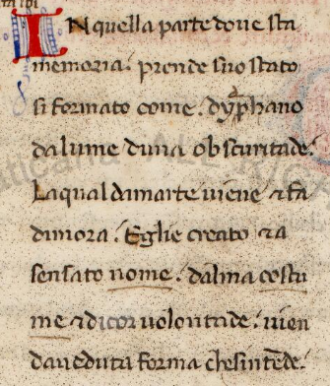 IN quella parte doue sta
memoria. prende suo stato
si formato come. dyaphano
dalume duna obscuritade.
Laqual damarte uiene ⁊ fa
dimora. Eglie creato ⁊ a
sensato nome. dalma costu
me ⁊ dicor uolontade. uien
daueduta forma chesintēde.